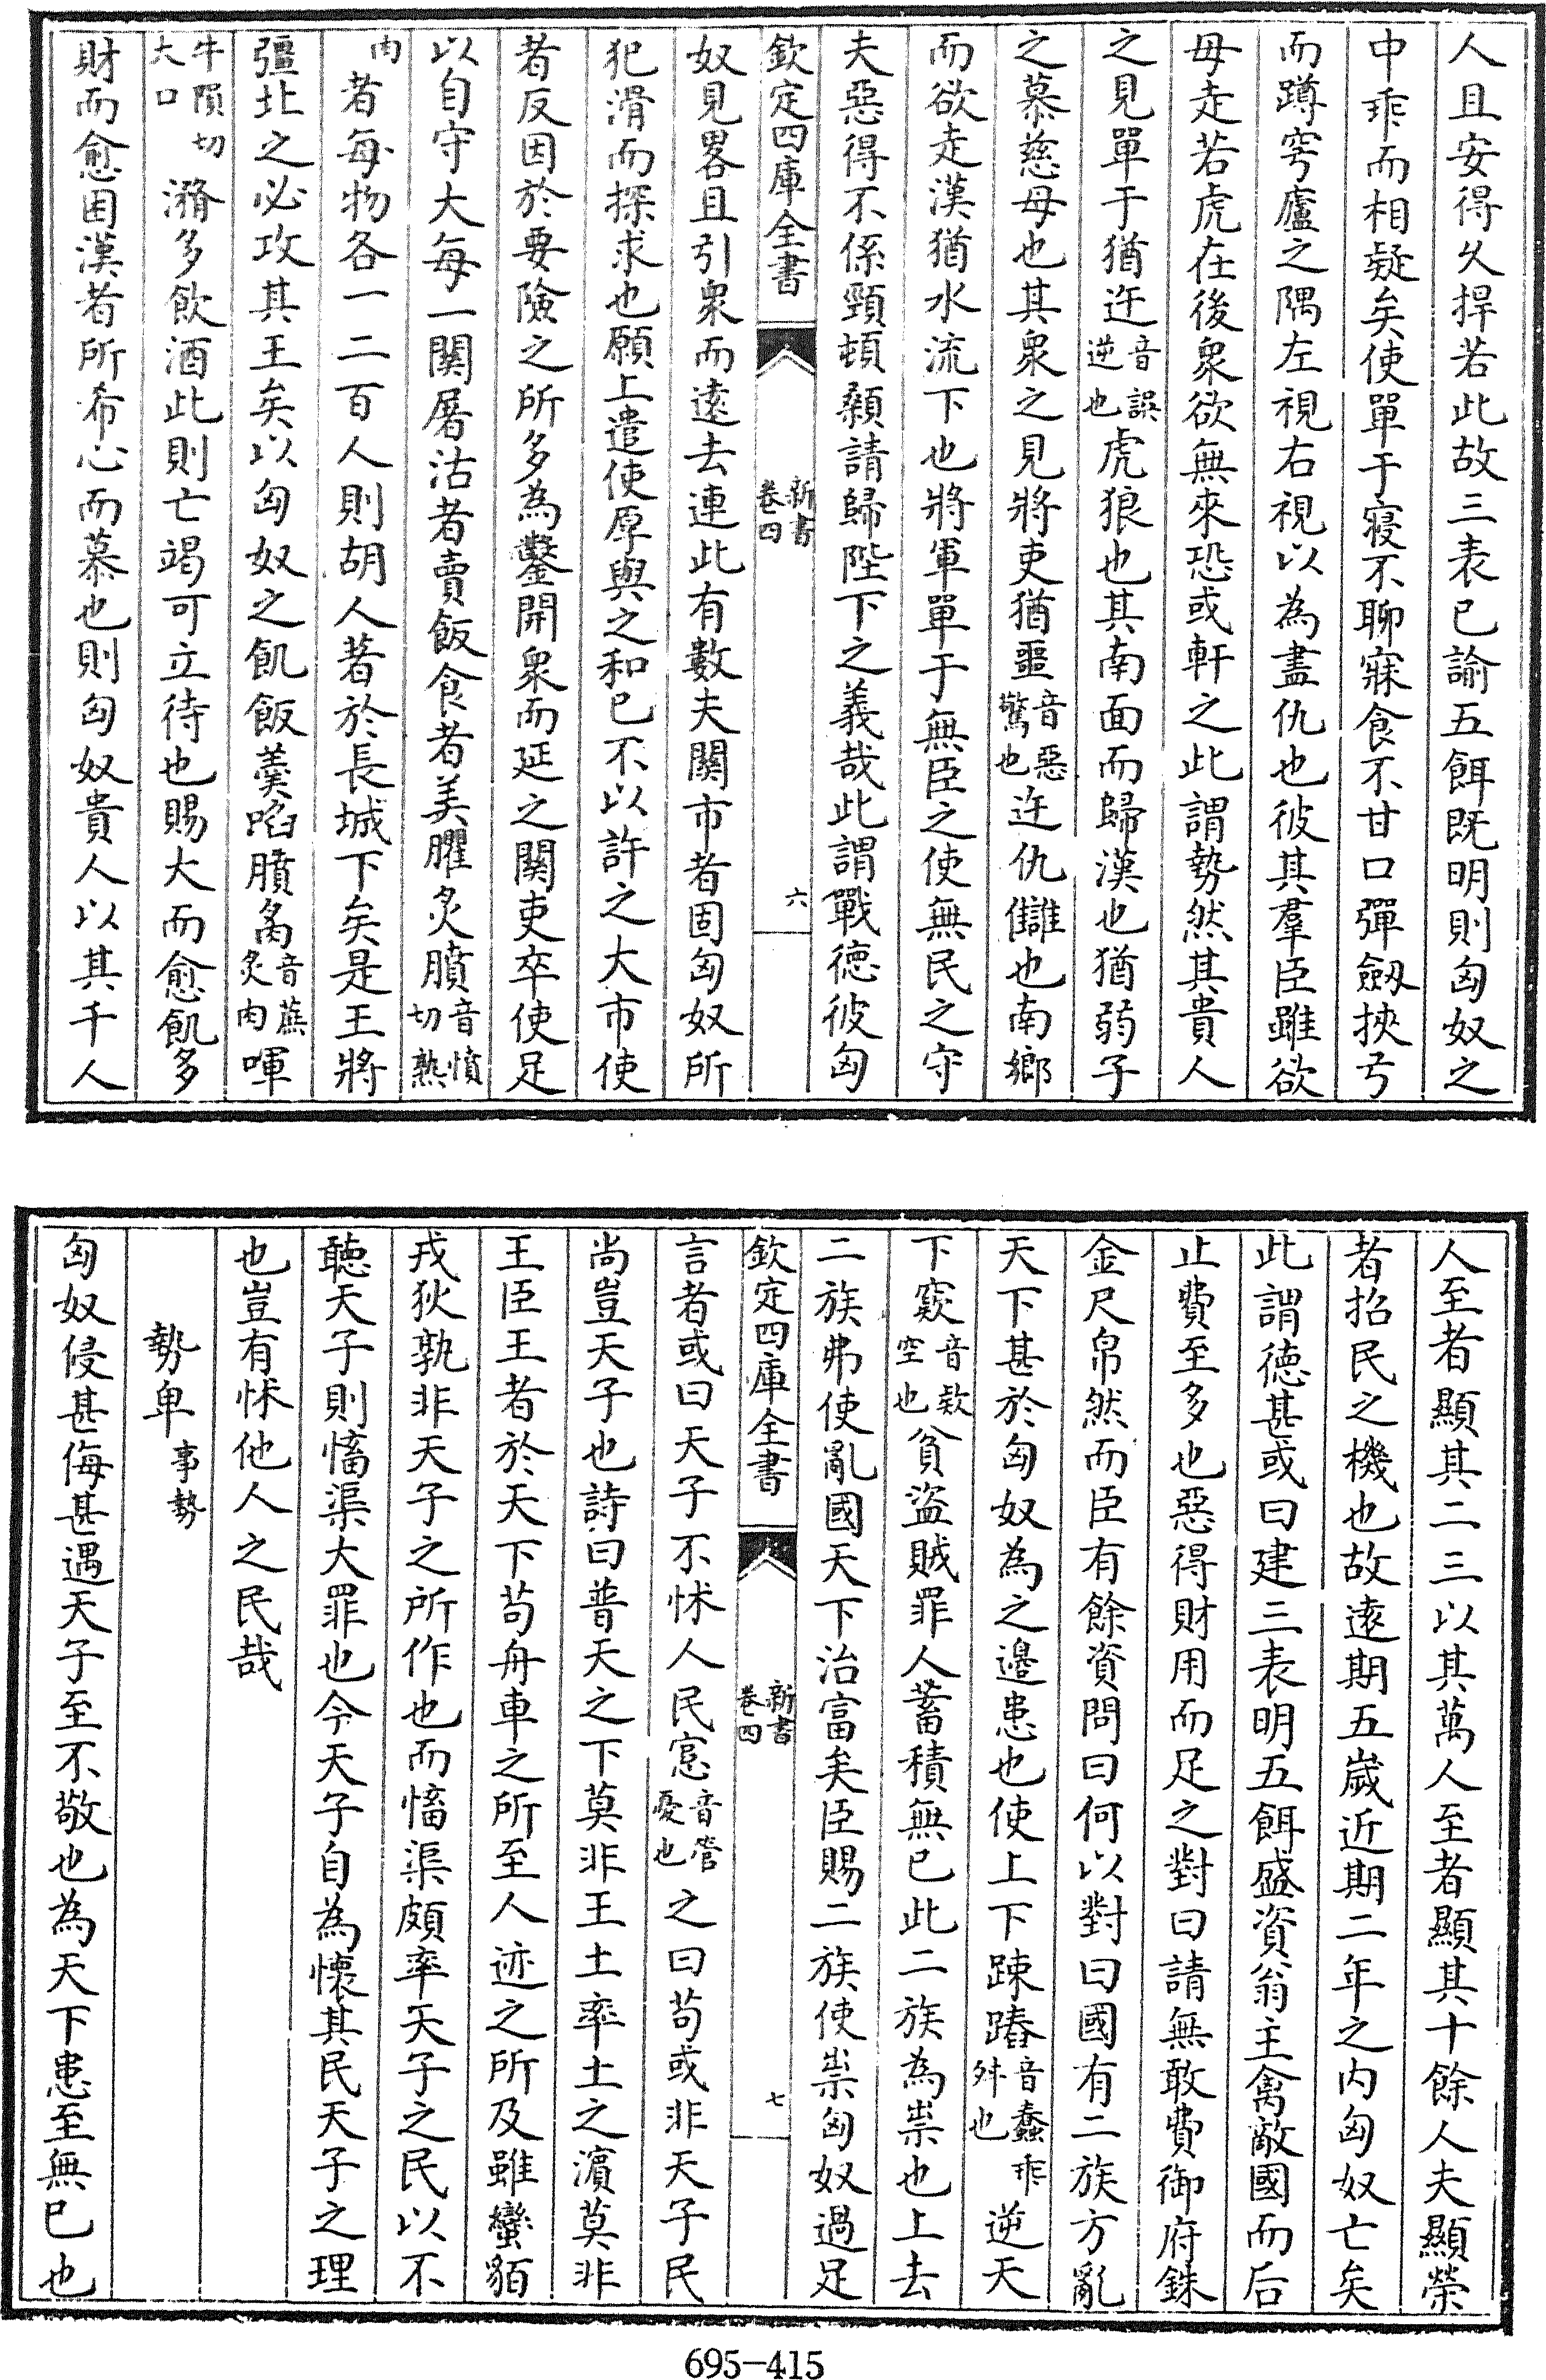 人且安得久捍若此故三表已諭五餌既明則匈奴之
中乖而相疑矣使單于寢不聊寐食不甘口彈劒挾弓
而蹲穹廬之隅左視右視以為盡仇也彼其羣臣雖欲
毋走若虎在後衆欲無來恐或軒之此謂勢然其貴人
之見單于猶迕音誤逆也虎狼也其南面而歸漢也猶弱子
之慕慈母也其衆之見將吏猶噩音惡驚也迕仇讎也南鄉
而欲走漢猶水流下也將軍單于無臣之使無民之守
夫惡得不係頸頓顙請歸陛下之義哉此謂戰徳彼匈
欽定四庫全書
新書卷四
六
奴見畧且引衆而遠去連此有數夫關市者固匈奴所
犯滑而探求也願上遣使厚與之和已不以許之大市使
者反因於要險之所多為鑿開衆而延之關吏卒使足
以自守大每一關屠沽者賣飯食者美臛炙膹音憤切熟
肉者每物各一二百人則胡人著於長城下矣是王將
彊北之必攻其王矣以匈奴之飢飯羹啗膹𦞦音蕉炙肉㖔
牛隕切大口㵟多飲酒此則亡竭可立待也賜大而愈飢多
財而愈困漢者所希心而慕也則匈奴貴人以其千人
人至者顯其二三以其萬人至者顯其十餘人夫顯榮
者招民之機也故遠期五歲近期二年之内匈奴亡矣
此謂徳甚或曰建三表明五餌盛資翁主禽敵國而后
止費至多也惡得財用而足之對曰請無敢費御府銖
金尺帛然而臣有餘資問曰何以對曰國有二族方亂
天下甚於匈奴為之邊患也使上下踈躇音蠢乖舛也逆天
下窾音欵空也貧盜賊罪人蓄積無已此二族為祟也上去
二族弗使亂國天下治富矣臣賜二族使祟匈奴過足
欽定四庫全書
新書卷四
七
言者或曰天子不怵人民悹音管憂也之曰苟或非天子民
尚豈天子也詩曰普天之下莫非王土率土之濵莫非
王臣王者於天下苟舟車之所至人迹之所及雖蠻貊
戎狄孰非天子之所作也而慉渠頗率天子之民以不
聽天子則慉渠大罪也今天子自為懷其民天子之理
也豈有怵他人之民哉
勢卑事勢
匈奴侵甚侮甚遇天子至不敬也為天下患至無已也
695-415